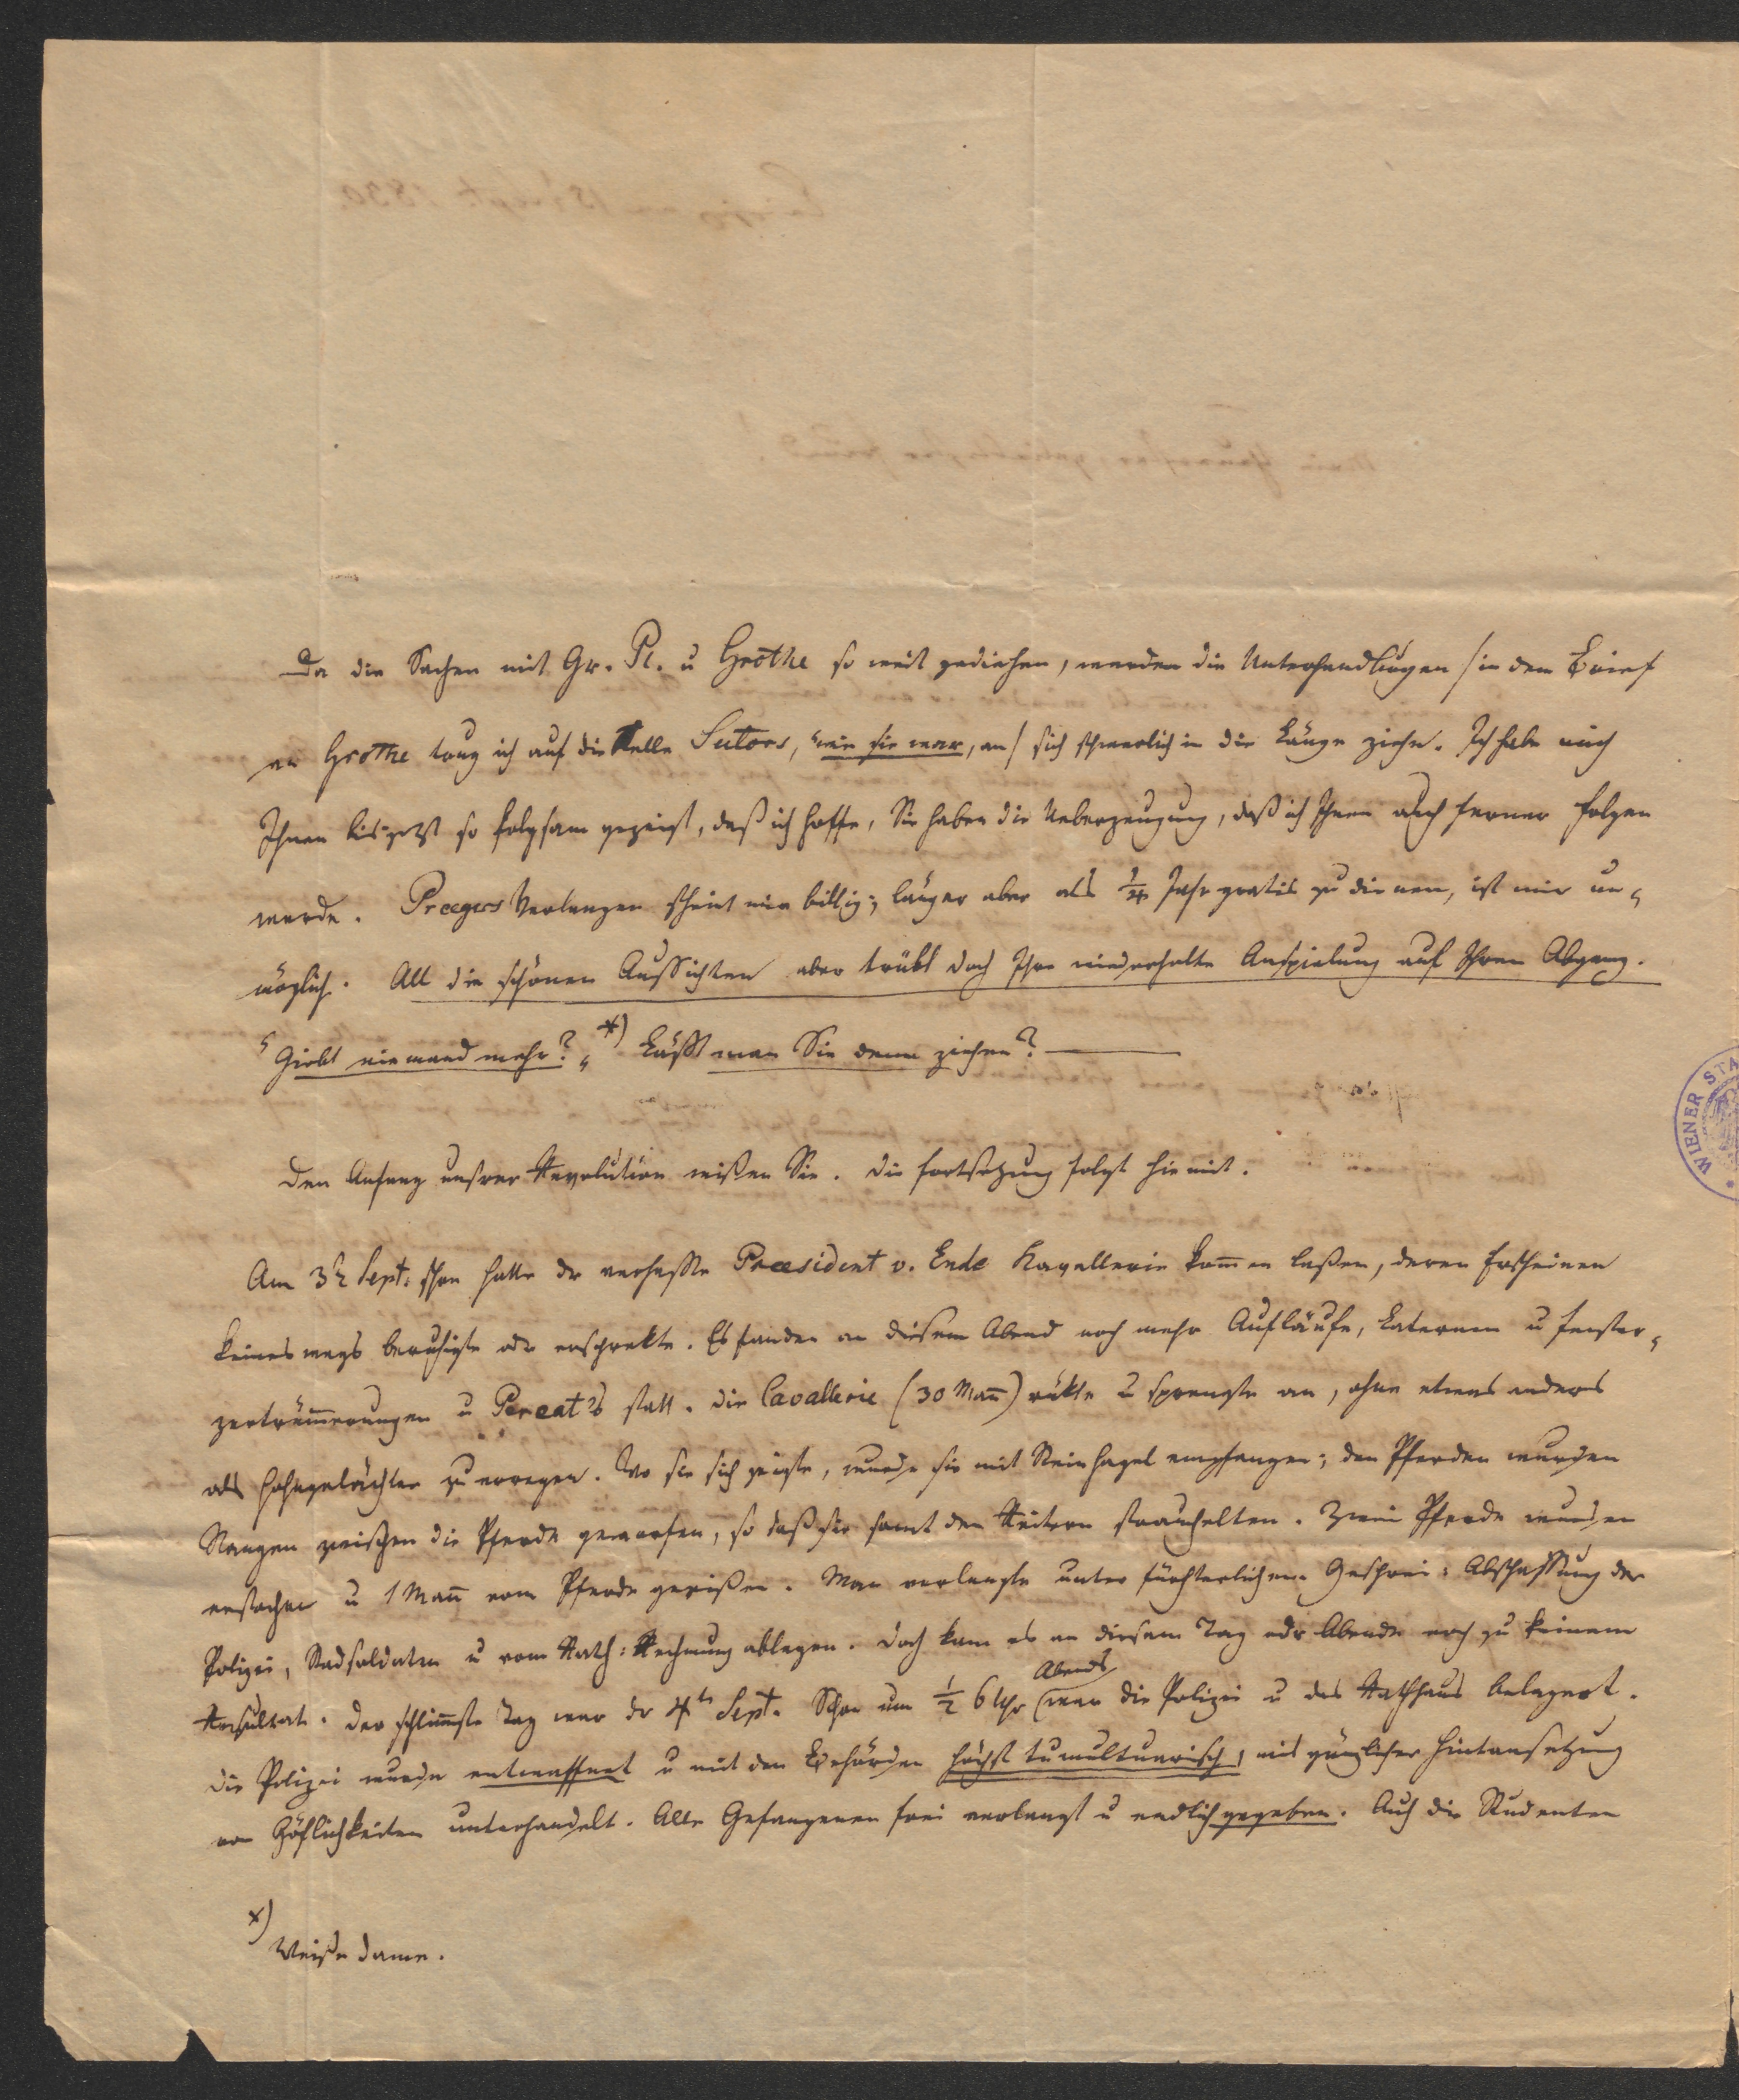 Da die Sachen mit Gr. Pl. u Grothe so weit gediehen, werden die Unterhandlungen /in dem Brief
an Grothe trug ich auf die Stelle Sutors, "wie sie war, an/ sich schwerlich in die Länge ziehn. Ich habe mich
Ihnen bis jetzt so folgsam gezeigt, daß ich hoffe, Sie haben die Ueberzeugung, daß ich Ihnen auch ferner folgen
werde. Praegers Verlangen scheint mir billig; länger aber als Jahr gratis zu dienen, ist mir un-
möglich. All die schönen Aussichten aber trübt doch Ihre wiederholte Anspielung auf Ihren Abgang.
"Giebt niemand mehr?" *) Läßt man Sie denn ziehen? —
Den Anfang unsrer Revolution wißen Sie. Die Fortsetzung folgt hiemit.
Am 3t Sept. schon hatte der verhaßte Praesident v. Ende Kavallerie kommen laßen, deren Erscheinen
keineswegs beruhigte oder erschrekte. Es fanden an diesem Abend noch mehr Aufläufe, Laternen u Fenster-
zertrümmerungen u Pereat's statt. Die Cavallerie (30 Mann) rükte u sprengte an, ohne etwas anders
als Hohngelächter zu erregen. Wo sie sich zeigte, wurde sie mit Steinhagel empfangen; den Pferden wurden
Stangen zwischen die Pferde geworfen, so daß sie samt den Reitern strauchelten. Zwei Pferde wurden
erstochen u 1 Mann vom Pferde gerißen. Man verlangte unter fürchterlichem Geschrei: Abschaffung der
Polizei, Stadsoldaten u vom Rath: Rechnung ablegen. Doch kam es an diesem Tag oder Abende noch zu keinem
Resultat. Der schlimmste Tag war der 4te Sept. Schon um ½ 6 Uhr Abends war die Polizei u das Rathhaus belagert.
Die Polizei wurde entwaffnet u mit den Behörden höchst tumultuarisch, mit gänzlicher Hintansetzung
von Höflichkeiten unterhandelt. Alle Gefangenen frei verlangt u endlich gegeben. Auch die Studenten
x) Weiße Dame.
WIENER STA